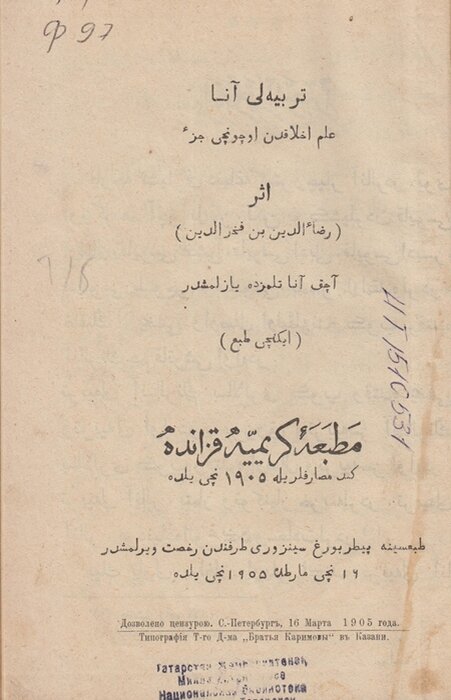 Ф 97
تربيه لی آنا
علم اخلاقدن اوچونچی جزء
اثر
(رضاءالدين بن فخرالدين)
آچق آنا تلمزده يازلمشدر
(ايكنچی طبع)
ИТ 1510531
مطبعۀ كريميه قزانده
كند مصارفلريله ١٩٠٥ نچی يلده
طبعسينه پيطربورغ سينزوری طرفندن رخصت ويرلمشدر
١٦ نچی مارطده ١٩٠٥ نچی يلده
Дозволено цензурою. С.-Петербургъ, 16 Марта 1905 года.
Типографія Т-го Д-ма „Братья Каримовы" въ Казани.
Национальная библиотека